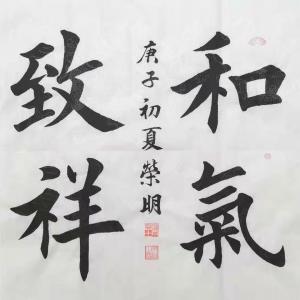 和氣
致祥
庚子初夏榮明